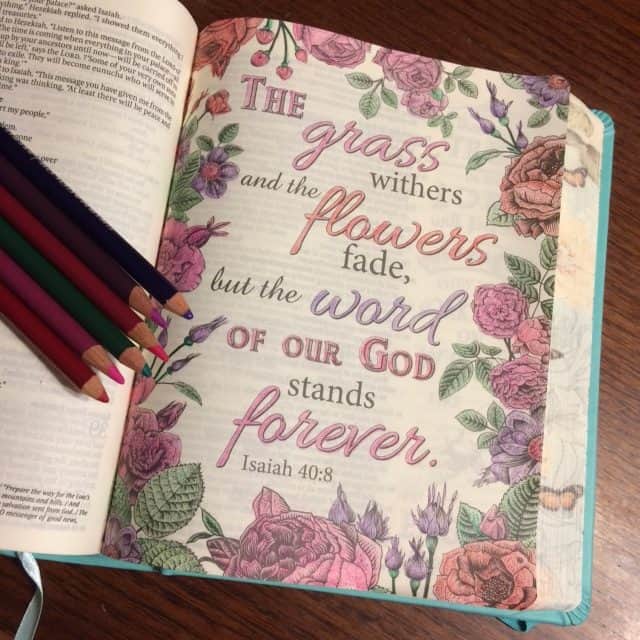 palace?" asked Isaiah.
Hezekiah replied. "I showed them everything
to Hezekiah, "Listen to this message from the LORD
time is coming when everything in your
up by your ancestors until now—will be carried
be left," says the LORD. "Some of your very own
exile. They will become eunuchs who will serve
king."
to Isaiah, "This message you have given me from
king was thinking, "At least there will be peace
my people,"
over
THE
grass
withers
and the
flowers
fade,
but the
word
OF OUR GOD
stands
forever.
Isaiah 40:8
"Prepare the way for the LORD's
mountains and hills, / And
salvation sent from God.
messenger of good news,